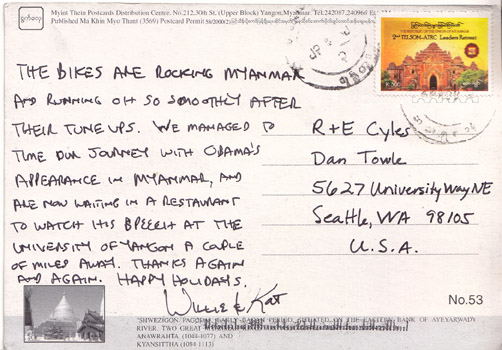 Myint Thein Postcards Distribution Centre, No.212, 30th St, (Upper Block) Yangon, Myanmar. Tel.242087,240960
Published Ma Khin Myo Thant (3569) Postcard Permit
THE BIKES ARE ROCKING MYANMAR
AND RUNNING OH SO SMOOTHLY AFTER
THEIR TUNE UPS. WE MANAGED TO
TIME OUR JOURNEY WITH OBAMA'S
APPEARANCE IN MYANMAR, AND
ARE NOW WAITING IN A RESTAURANT
TO WATCH HIS SPEECH AT THE
UNIVERSITY OF YANGON A COUPLE
OF MILES AWAY. THANKS AGAIN
AND AGAIN. HAPPY HOLIDAYS.
Willie & Kat
2nd TELSOM-ATRC Leaders Retreat
R+E Cyles
Dan Towle
5627 University Way NE
Seattle, WA 98105
U.S.A.
No.53
"SHWEZIGON PAGODA, EARLY BAGAN PERIOD, SITUATED ON THE EASTERN BANK OF AYEYARWADY
RIVER. TWO GREAT
ANAWRAHTA (1044-1077) AND
KYANSITTHA (1084-1113)